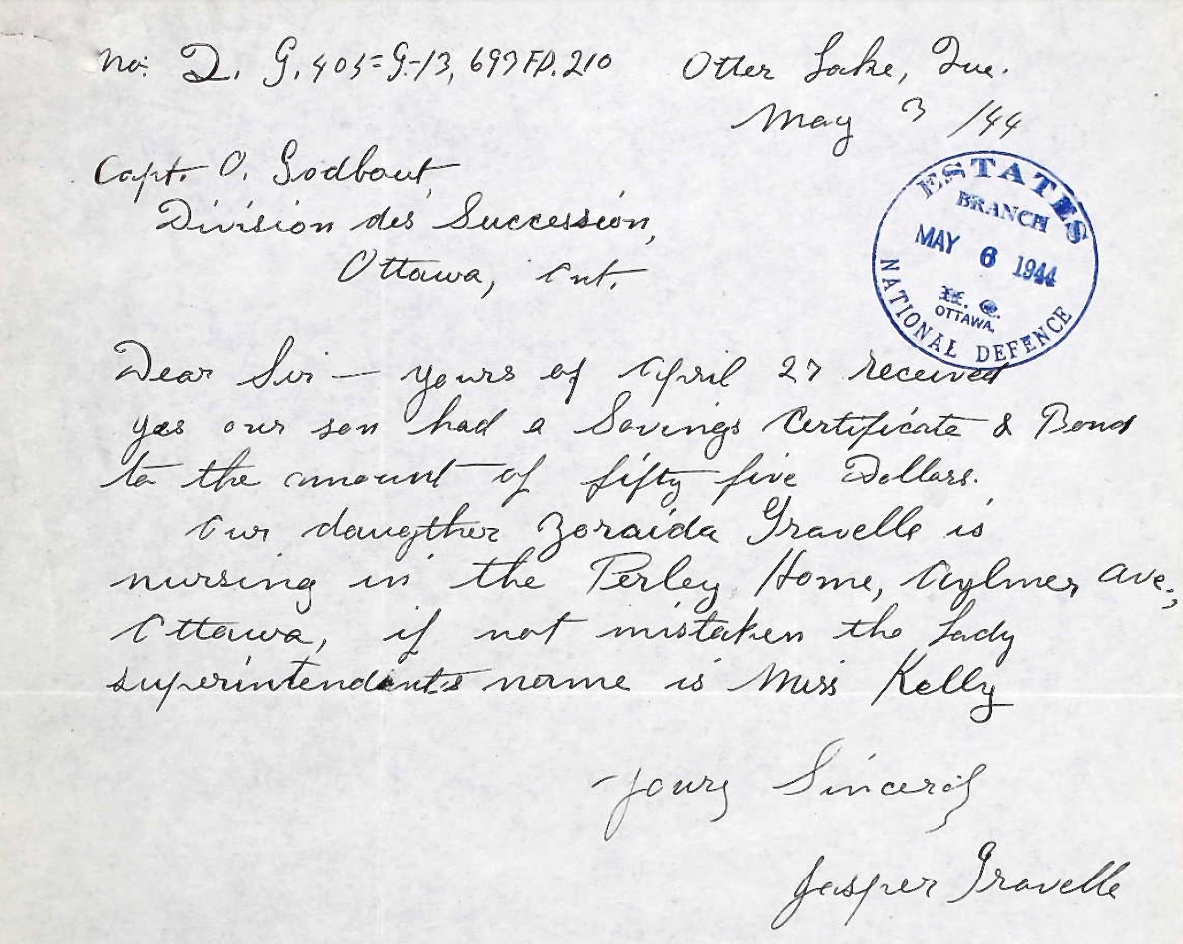 No: D. G. 405=G-13,697 FD. 210
Otter Lake, Que.
May 3 /44
Capt. O. Godbout,
Division des Succession,
Ottawa, Ont.
ESTATES
BRANCH
MAY 6 1944
H. Q.
OTTAWA.
NATIONAL DEFENCE
Dear Sir — yours of April 27 received
yes our son had a Savings Certificate & Bond
to the amount of fifty five Dollars.
Our daugther Zoraida Gravelle is
nursing in the Perley Home, Aylmer Ave.,
Ottawa, if not mistaken the Lady
superintendants name is Miss Kelly
Yours Sincerly
Jasper Gravelle